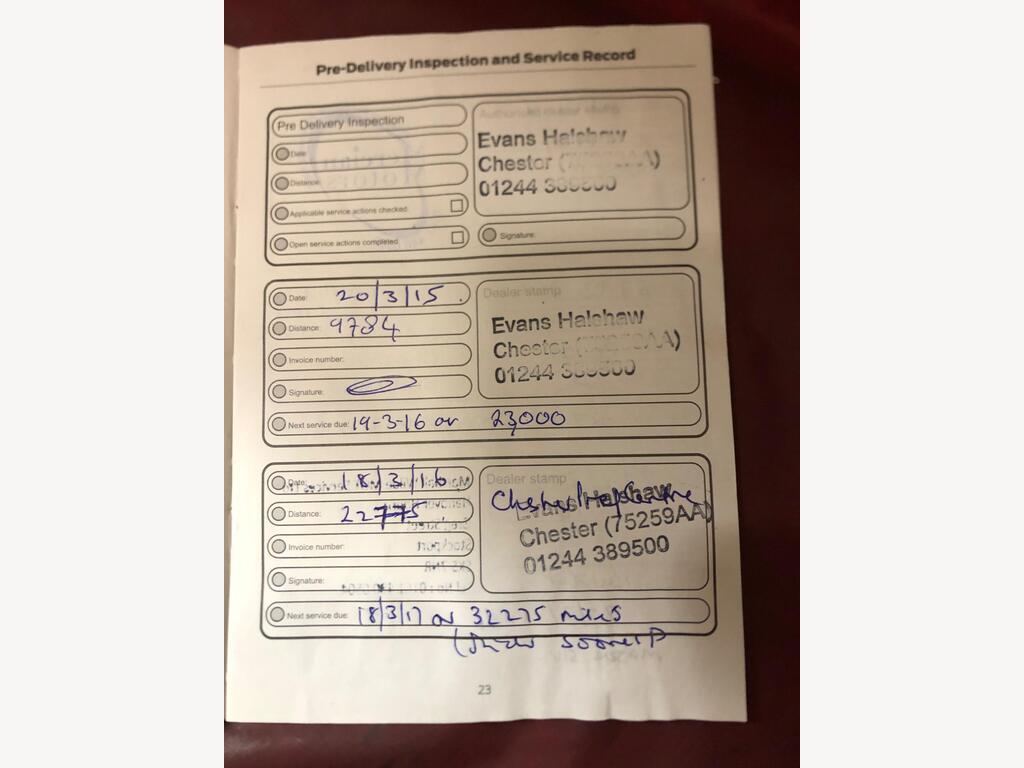 Pre-Delivery Inspection and Service Record
Pre Delivery Inspection
Date:
Distance:
Applicable service actions checked:
Open service actions completed:
Authorised dealer stamp
Evans Halshaw
Chester
01244 389500
Signature:
Date: 20/3/15
Distance: 9784
Invoice number:
Signature:
Next service due: 19-3-16 or 23,000
Dealer stamp
Evans Halshaw
Chester (75259AA)
01244 389500
Date: 18/3/16
Distance: 22775
Invoice number:
Signature:
Next service due: 18/3/17 or 32275 miles
Dealer stamp
Evans Halshaw
Chester (75259AA)
01244 389500
23